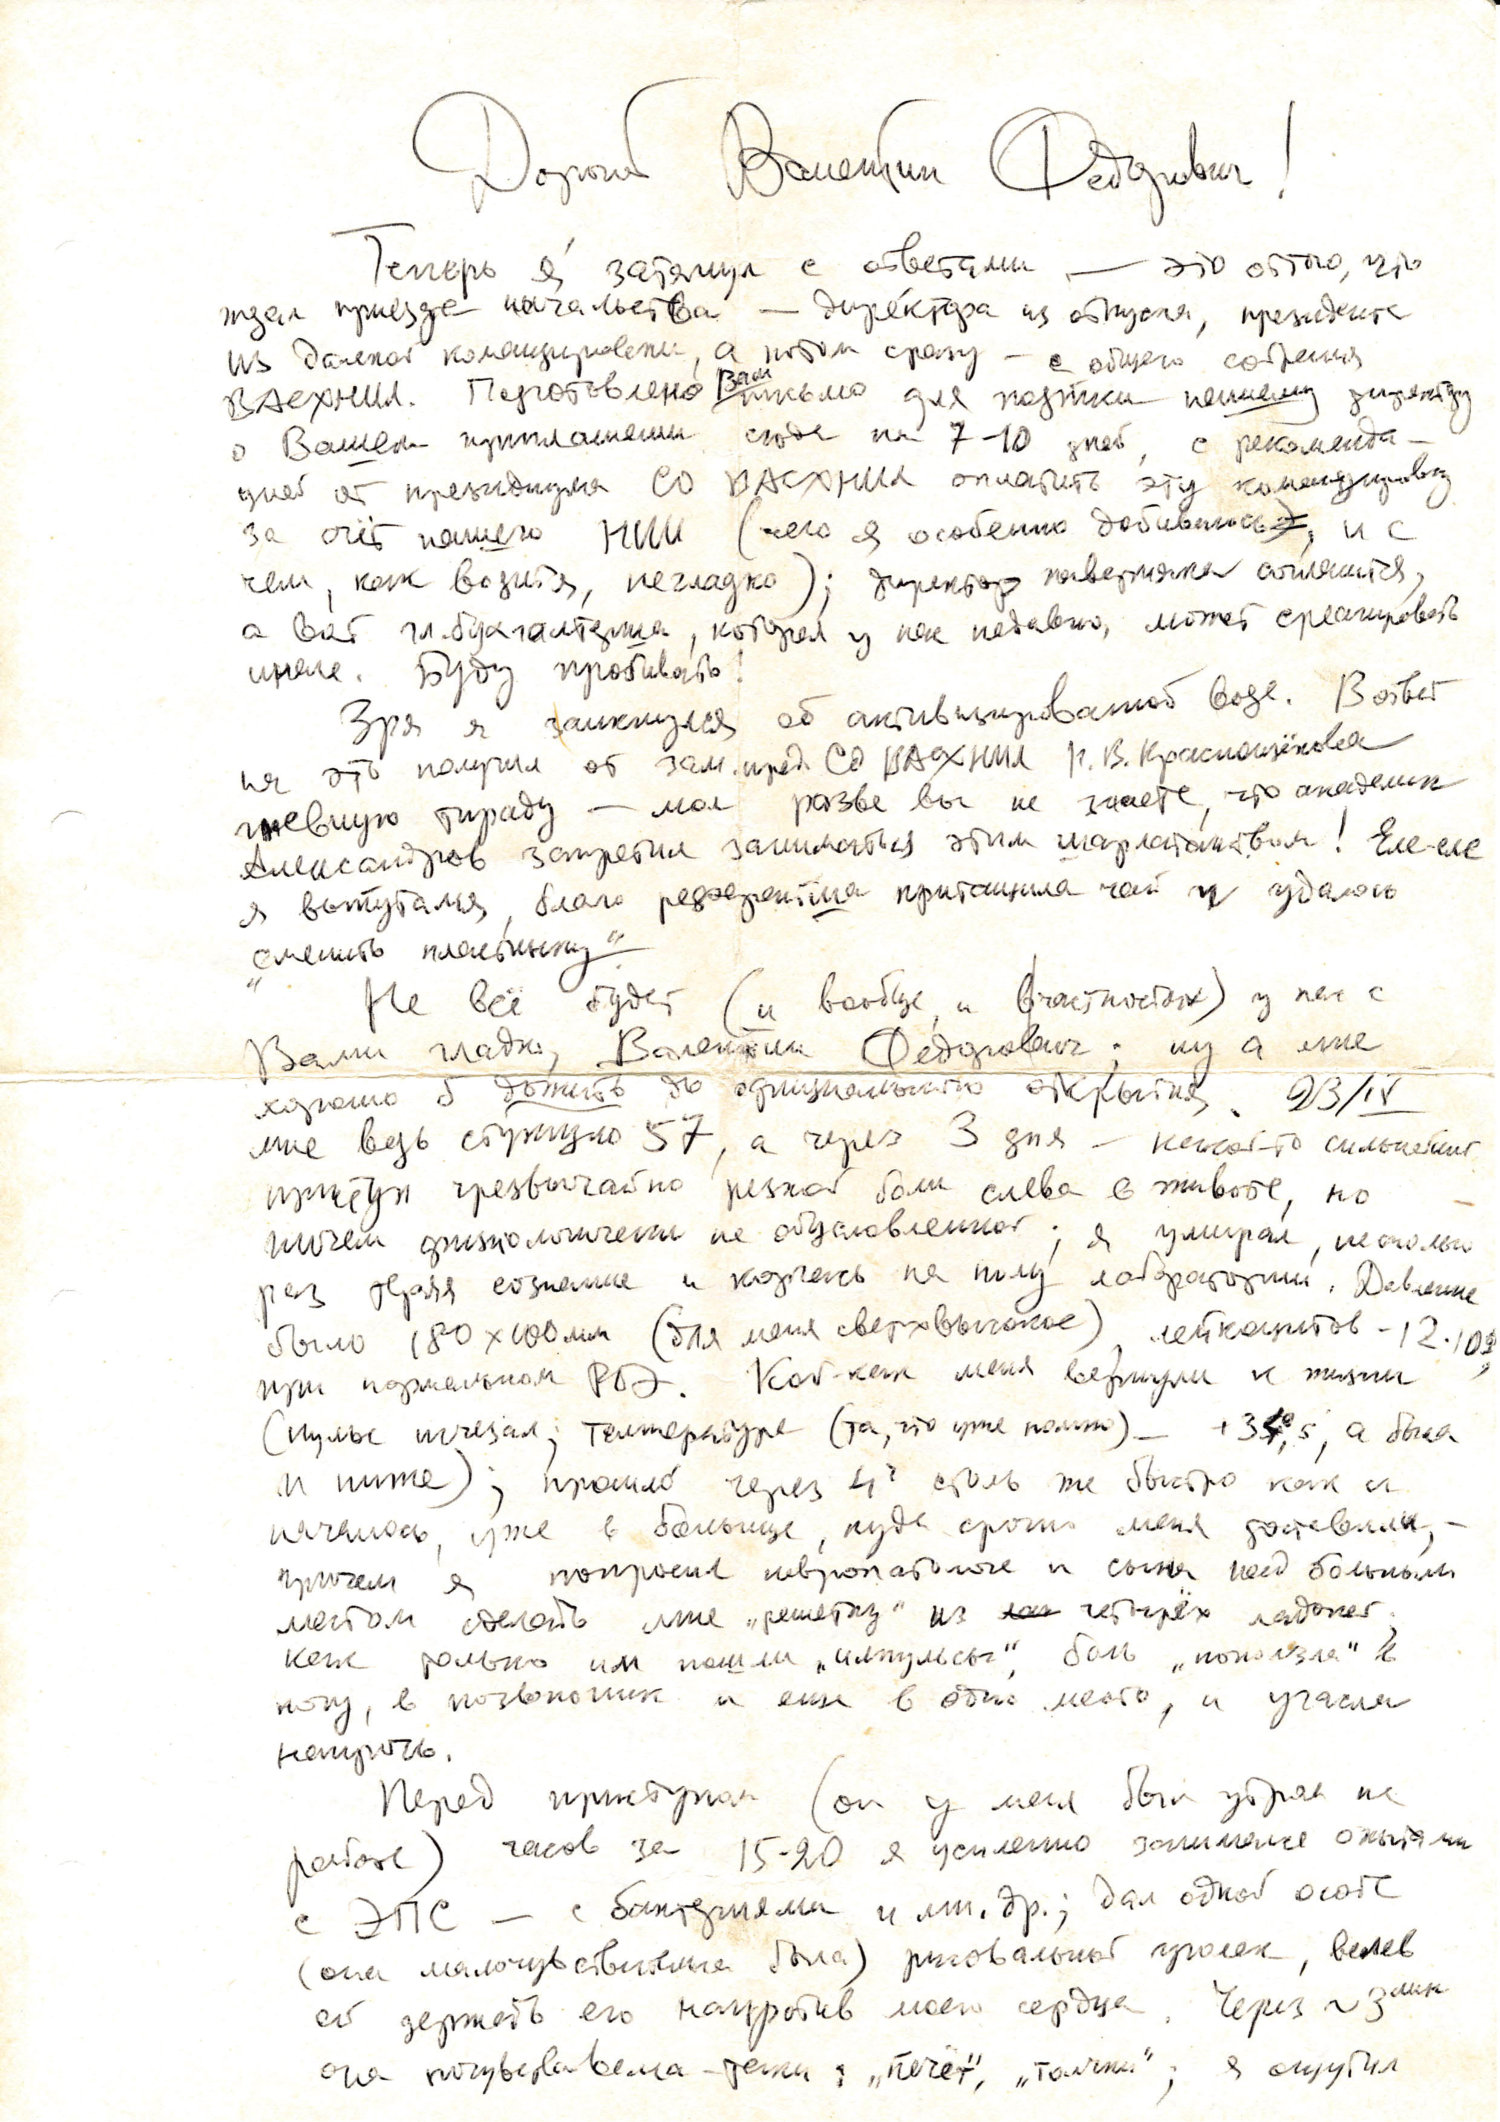 Дорогой Валентин Фёдорович!
Теперь я затянул с ответами — это оттого, что
ждал приезда начальства — директора из отпуска, президента
из далёкой командировки, а потом сразу — с общего собрания
ВАСХНИЛ. Подготовлено Вам письмо для подписи нашему директору
о Вашем приглашении сюда на 7-10 дней, с рекоменда-
цией от президиума СО ВАСХНИЛ оплатить эту командировку
за счёт нашего НИИ (чего я особенно добивался, и с
чем, как водится, негладко); директор наверняка согласится,
а вот гл. бухгалтерша, которая у нас недавно, может среагировать
иначе. Буду пробивать!
Зря я заикнулся об активизированной воде. В ответ
на это получил от зам. пред. СО ВАСХНИЛ Н.В. Краснощёкова
гневную тираду — мол разве вы не знаете, что академик
Александров запретил заниматься этим шарлатанством! Еле-еле
я выпутался, благо референтша притащила чай и удалось
„сменить пластинку".
Не всё будет (и вообще, и в частностях) у нас с
Вами гладко, Валентин Фёдорович; ну а мне
хорошо б дожить до официального открытия. 23/IV
мне ведь стукнуло 57, а через 3 дня — какой-то сильнейший
приступ чрезвычайно резкой боли слева в животе, но
ничем физиологически не обусловленной; я умирал, несколько
раз теряя сознание и корчась на полу лаборатории. Давление
было 180 х 100 мм (для меня сверхвысокое) лейкоцитов - 12·10³,
при нормальном РОЭ. Кой-как меня вернули к жизни
(пульс исчезал; температура (та, что уже помню) — +34°,5, а была
и ниже); прошло через 4ч столь же быстро как и
началось, уже в больнице, куда срочно меня доставили, —
причем я попросил невропатолога и сына над больным
местом сделать мне „решетку" из четырёх ладоней;
как только им пошли „импульсы", боль „поползла" в
ногу, в позвоночник и еще в одно место, и угасла
напрочь.
Перед приступом (он у меня был утром на
работе) часов за 15-20 я усиленно занимался опытами
с ЭПС — с бактериями и мн. др.; дал одной особе
(она малочувствительна была) рисовальный уголек, велев
ей держать его напротив моего сердца. Через ~3мин
она почувствовала-таки: „печёт", „толчки"; я ощутил